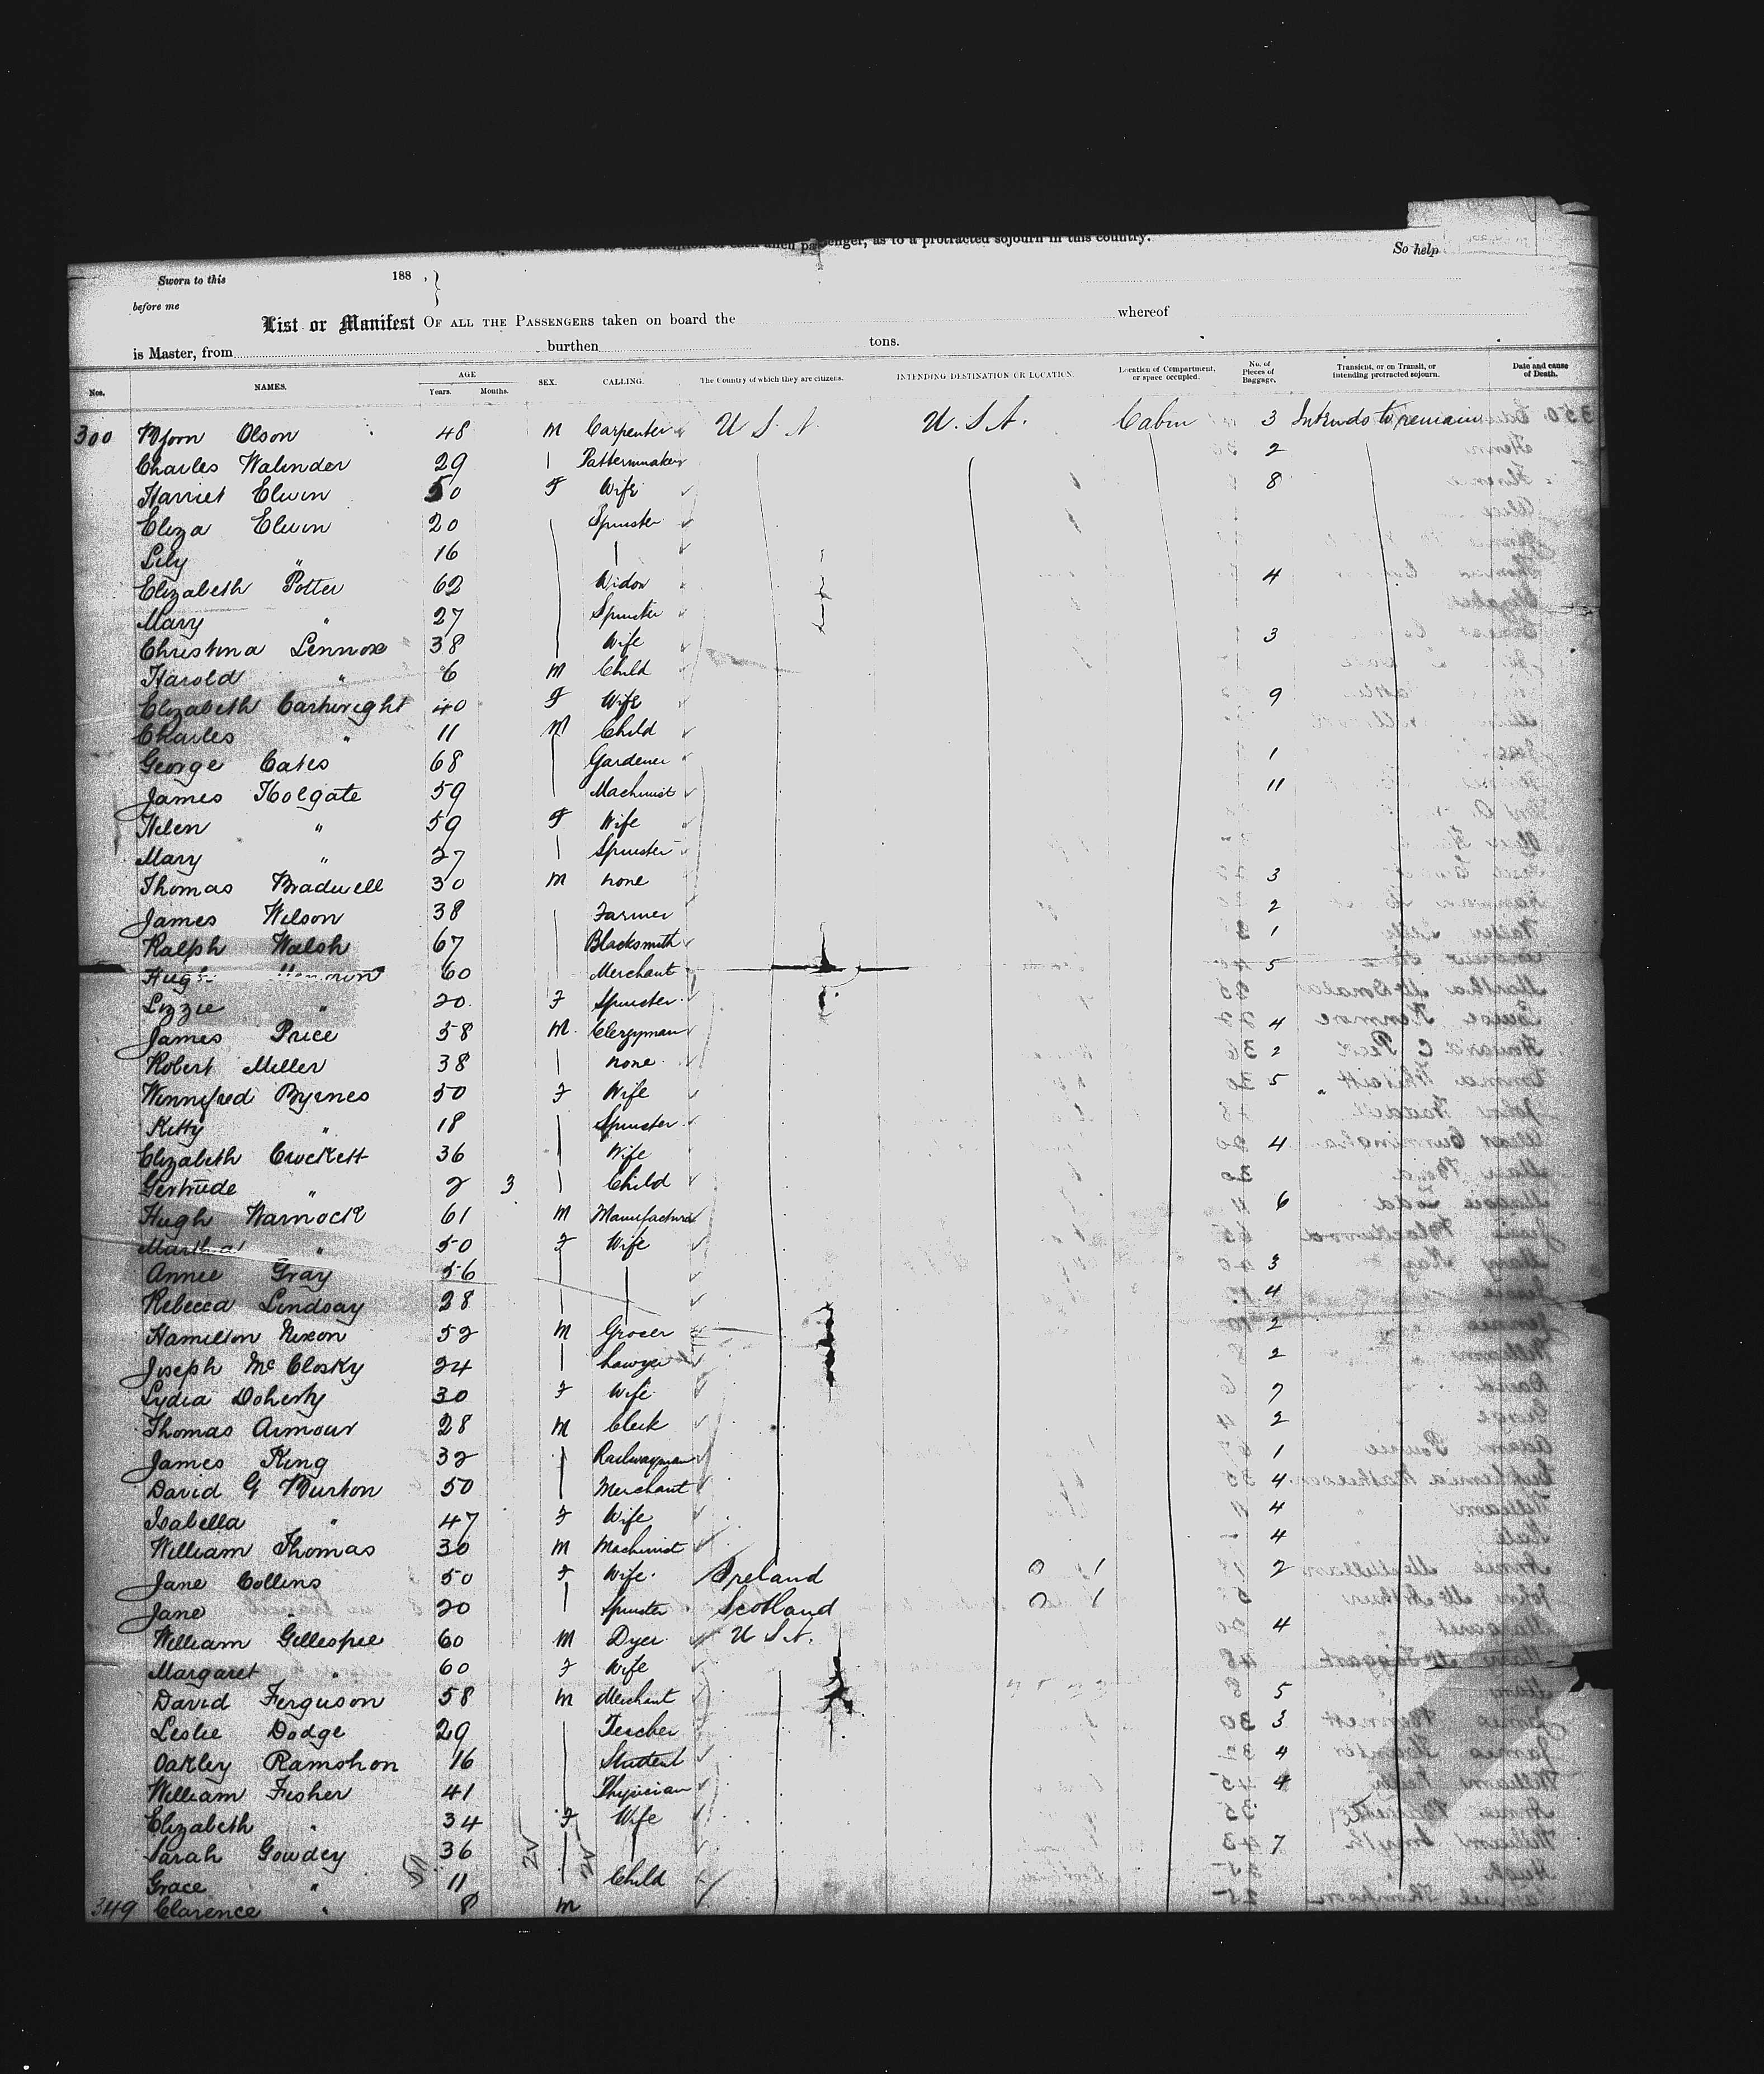 each alien passenger, as to a protracted sojourn in this country.
So help
Sworn to this 188 , }
before me
List or Manifest OF ALL THE PASSENGERS taken on board the whereof
is Master, from burthen tons.
Nos. NAMES. AGE Years. Months. SEX. CALLING. The Country of which they are citizens. INTENDING DESTINATION OR LOCATION. Location of Compartment, or space occupied. No. of Pieces of Baggage. Transient, or on Transit, or intending protracted sojourn. Date and cause of Death.
300 Bjorn Olson 48 M Carpenter U S A. U. S A. Cabin 3 Intends to remain
Charles Walinder 29 Patternmaker 2
Harriet Elwin 50 F Wife 8
Eliza Elwin 20 Spinster
Lily " 16
Elizabeth Potter 62 Widow 4
Mary " 27 Spinster
Christina Lennox 38 Wife 3
Harold " 6 M Child
Elizabeth Cartwright 40 F Wife 9
Charles " 11 M Child
George Cates 68 Gardener 1
James Holgate 59 Machinist 11
Helen " 59 F Wife
Mary " 27 Spinster
Thomas Bradwell 30 M none 3
James Wilson 38 Farmer 2
Ralph Walsh 67 Blacksmith 1
Hugh 60 Merchant 5
Lizzie " 20 F Spinster
James Price 58 M. Clergyman 4
Robert Miller 38 none 2
Winnifred Byrnes 50 F Wife 5 "
Kitty " 18 Spinster
Elizabeth Crockett 36 Wife 4
Gertrude " 2 3 Child
Hugh Warnock 61 M Manufacturer 6
Martha " 50 F Wife
Annie Gray 56 3
Rebecca Lindsay 28 4
Hamilton Nixon 52 M Grocer 2
Joseph Mc Closky 24 Lawyer 2
Lydia Doherty 30 F Wife 7
Thomas Armour 28 M Clerk 2
James King 32 Railwayman 1
David G Burton 50 Merchant 4
Isabella " 47 F Wife 4
William Thomas 30 M Machinist 4
Jane Collins 50 F Wife Ireland 2
Jane " 20 Spinster Scotland
William Gillespie 60 M Dyer U S A. 4
Margaret " 60 F Wife
David Ferguson 58 M Merchant 5
Leslie Dodge 29 Teacher 3
Oakley Ramshon 16 Student 4
William Fisher 41 Physician 4
Elizabeth " 34 F Wife
Sarah Gowdey 36 7
Grace " 11 Child
349 Clarence " 8 M